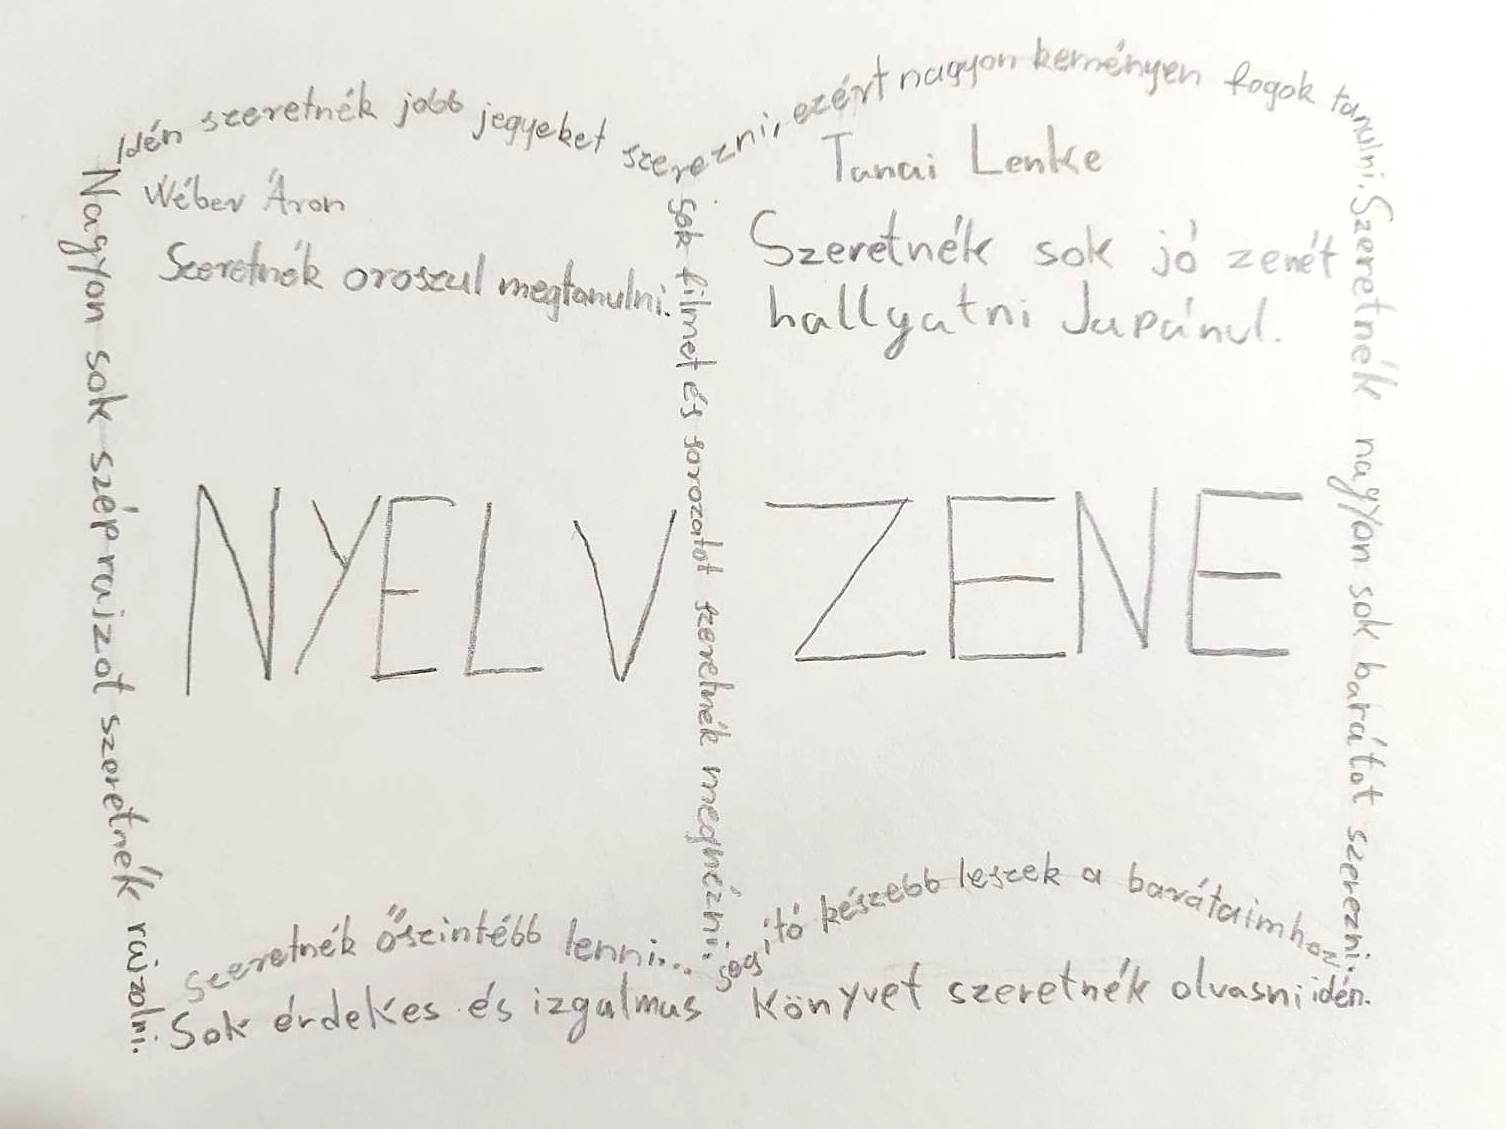 Idén szeretnék jobb jegyeket szerezni, ezért nagyon keményen fogok tanulni.
Wéber Áron
Szeretnék oroszul megtanulni.
Tanai Lenke
Szeretnék sok jó zenét
hallyatni Japánul.
Nagyon sok szép rajzot szeretnék rajzolni.
sok filmet és sorozatot szeretnék megnézni.
Szeretnék nagyon sok barátot szerezni.
NYELV
ZENE
Szeretnék őszintébb lenni...
segítő készebb leszek a barátaimhoz
Sok érdekes és izgalmas könyvet szeretnék olvasni idén.